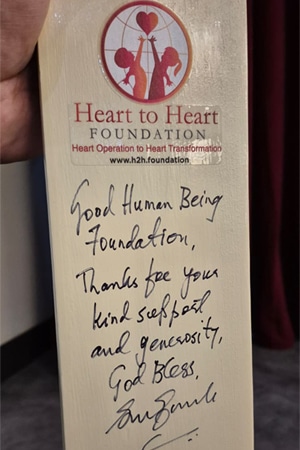 Heart to Heart
FOUNDATION
Heart Operation to Heart Transformation
www.h2h.foundation
Good Human Being
Foundation,
Thanks for your
kind support
and generosity,
God Bless,